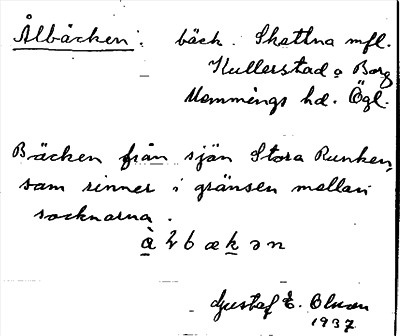 Ålbäcken: bäck. Skattna mfl.
Kullerstad o Borg
Memmings hd. Ögl.
Bäcken från sjön Stora Runken,
som rinner i gränsen mellan
socknarna.
Gustaf E. Olsson
1937